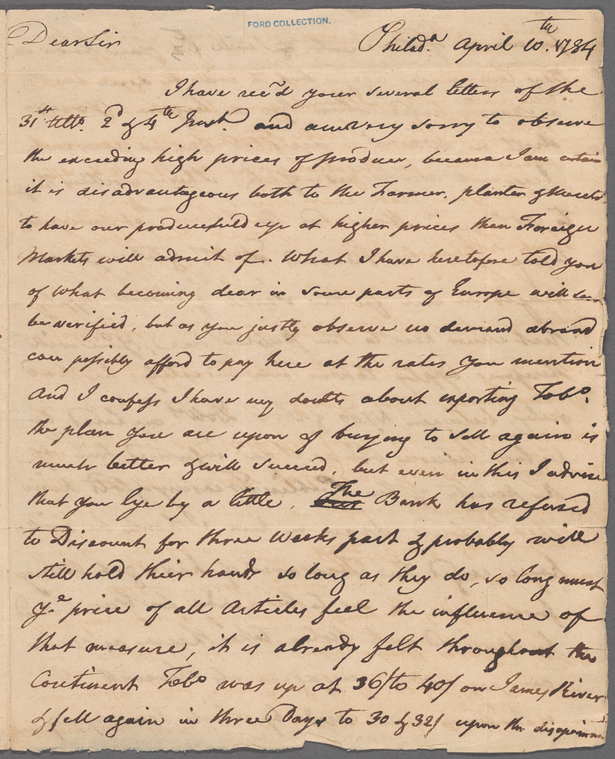 FORD COLLECTION.
Dear Sir Philad.a April 10.th 1784
I have rec'd your several letters of the
31st Ulto. 2d & 4th Inst. and am very sorry to observe
the exceeding high prices of produce, because I am certain
it is disadvantageous both to the Farmer, planter &
to have our produce held up at higher prices than Foreign
Markets will admit of. What I have heretofore told you
of what becoming dear in some parts of Europe will
be verified, but as you justly observe no demand abroad
can possibly afford to pay here at the rates you mention
And I confess I have my doubts about exporting Tobo.
the plan you are upon of buying to sell again is
much better & will succeed, but even in this I advise
that you lye by a little. The Bank has refused
to Discount for three Weeks past & probably will
still hold their hands so long as they do, so long must
ye price of all Articles feel the influence of
that measure, it is already felt throughout the
Continent Tobo was up at 36/ to 40/ on James River
& fell again in three Days to 30 & 32/ upon the